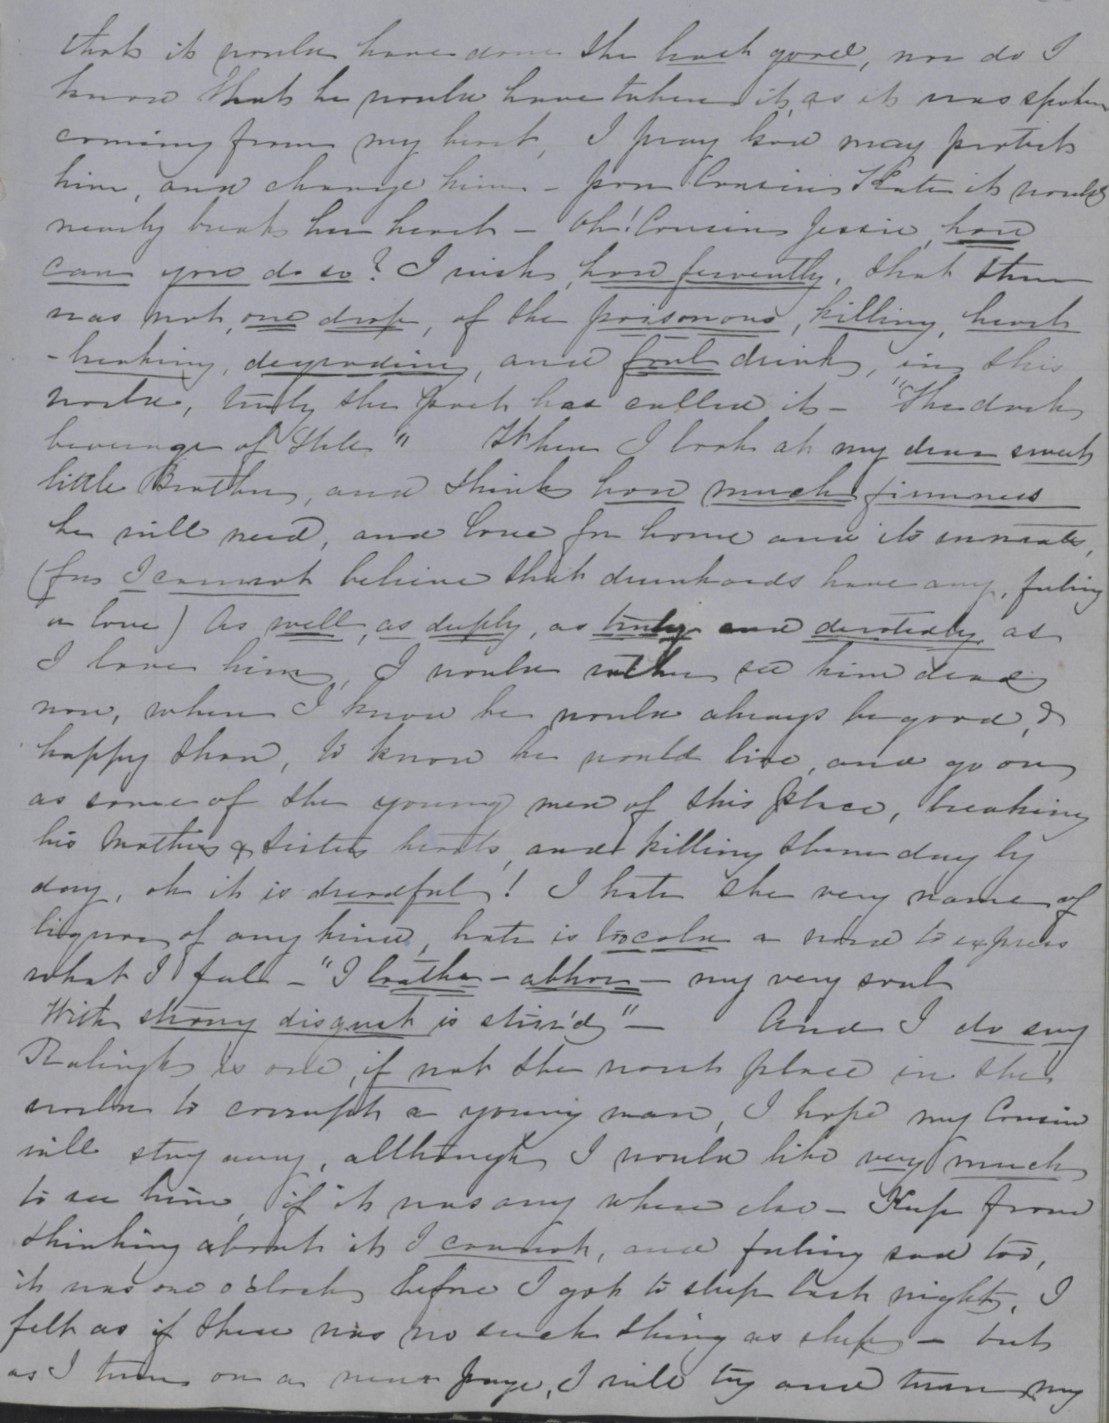 that it would have done the least good, nor do I
know that he would have taken it, as it was spoken
coming from my heart, I pray God may protect
him, and change him - poor Cousin Kate it would
nearly break her heart - Oh! Cousin Jessie, how
can you do so? I wish, how fervently, that there
was not, one drop, of the poisonous, killing, heart
-breaking, degrading, and foul drink, in this
world, truly the Poet has called it - "The dark
beverage of Hell" When I look at my dear sweet
little Brother, and think how much firmness
he will need, and love for home and its inmates,
(for I cannot believe that drunkards have any, feeling
or love) As well, as deeply, as truly and devotedly as
I love him, I would rather see him dead
now, when I know he would always be good, &
happy than, to know he would live, and go on
as some of the young men of this place, breaking
his Mothers & Sisters hearts, and killing them day by
day, oh it is dreadful! I hate the very name of
liquor of any kind, hate is too cold a word to express
what I feel - "I loathe - abhor - my very soul
With strong disgust is stirr'd" - And I do say
Raleigh is one, if not the worst place in the
world to corrupt a young man, I hope my Cousin
will stay away, although I would like very much
to see him, if it was any where else - Keep from
thinking about it I cannot, and feeling sad too,
it was one o'clock before I got to sleep last night, I
felt as if there was no such thing as sleep - but
as I turn on a new page, I will try and turn my